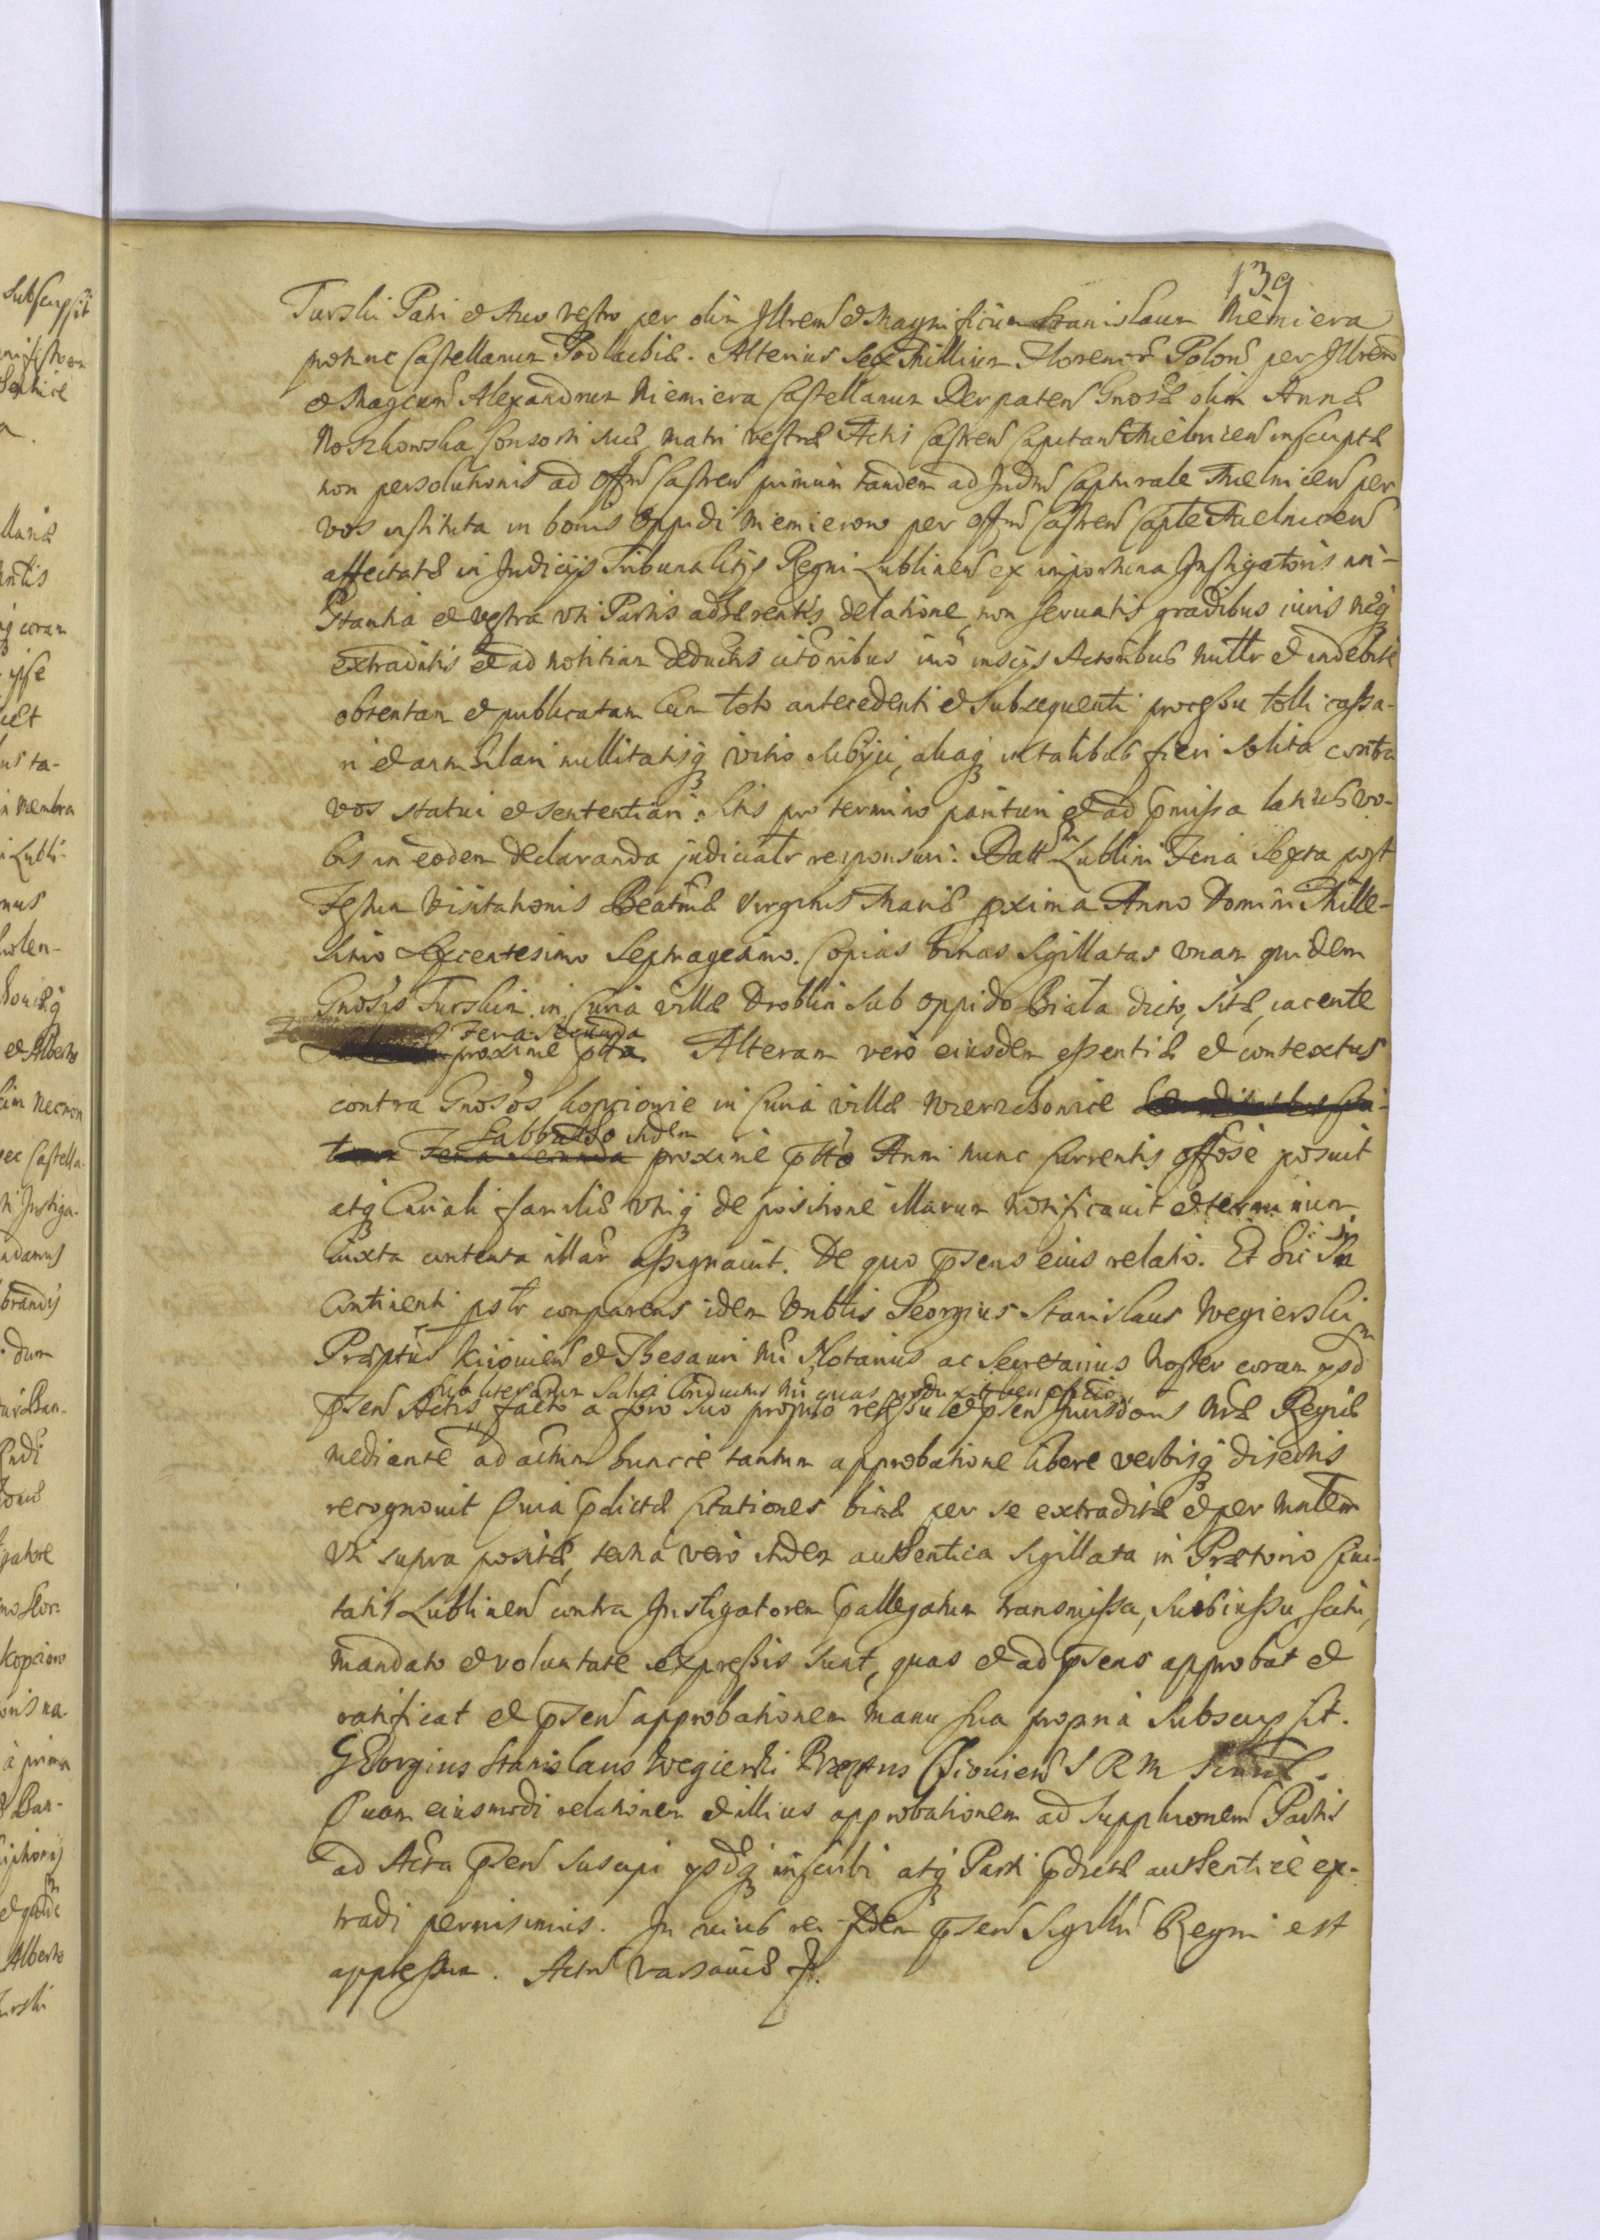 139
Turski Patri et Auo vestro per olim Illrem et Magnificum Stanislaum Niemiera
protunc Castellanum Podlachiæ. Alterius sex Millium Florenor Polon per Illrem
et Magcum Alexandrum Niemiera Castellanum Derpaten Gnosæ olim Annæ
Noszkowska Consorti suæ, matri vestræ Actis Castren Capitan Mielnicen inscriptæ
non persolutionis ad offm Castren primum tandem ad Judm Capturale Mielnicen per
vos instituta in bonis Oppidi Niemierow per offm Castren Caplte Mielnicen
affectatæ in Judicijs Tribunalitijs Regni Lublinen ex importuna Instigatoris in-
stantia et vestra vti Partis adhærentis delatione, non seruatis gradibus iuris neq
extraditis et ad notitiam deductis citōribus imo inscijs Actoribus nullr et indebite
obtentam et publicatam cum toto antecedenti et subsequenti processu tolli cassa-
ri et annihilari nullitatisq vitio subijci, aliaq in talibus fieri solita contra
vos statui et sententiari. Sitis pro termino parituri et ad præmissa latius vo-
bis in eodem declaranda judicialr responsuri. Datt Lublini Feria Sexta post
Festum Visitationis Beatmæ Virginis Mariæ pxima Anno Domini Mille-
simo Sexcentesimo Septuagesimo. Copias binas sigillatas vnam quidem
Gnosis Turskim in Curia villæ Droblin sub oppido Biała dicto, sitæ, iacente
Feria Secunda
proxime ptta. Alteram vero eiusdem essentiæ et contextus
contra Gnosos Kopcionie in Curia villæ Wierzchowice
Sabbatho itidem
Feria Secunda proxime ptto Anni nunc currentis offose posuit
atq Curiali familiæ vtriq de positione illarum notificauit et terminum
iuxta contenta illar assignauit. De quo psens eius relatio. Et hic in
Continenti pstr comparens idem Vnblis Georgius Stanislaus Wegierski
Præptus Kijouien et Thesauri Nri Notarius ac Secretarius Noster coram ysd
sub literarum Salui Conductus Nri quas produxit beneficio
psen Actis facto a foro suo proprio recessu et psen Jurisdons Nræ Regiæ
mediante ad actum huncce tantum approbatione libere verbisq disertis
recognouit Quia pdictæ Citationes binæ per se extraditæ et per Mnlem
vti supra positæ, terna vero itidem authentica sigillata in Prætorio Ciui-
tatis Lublinen contra Instigatorem pallegatum transmissa, sui iussu, scitu,
mandato et voluntate expressis sunt, quas et ad psens approbat et
ratificat et psen approbationem manu sua propria subscripsit.
GEorgius Stanislaus Wegierski Præptus Kiouien S R M
Quam eiusmodi relationem et illius approbationem ad supplionem Partis
ad Acta psen suscipi ysdq inscribi atq Parti pdictæ authentice ex-
tradi permisimus. In cuius rei fidem psen Sigillu Regni est
appressum. Actu Varsauiæ